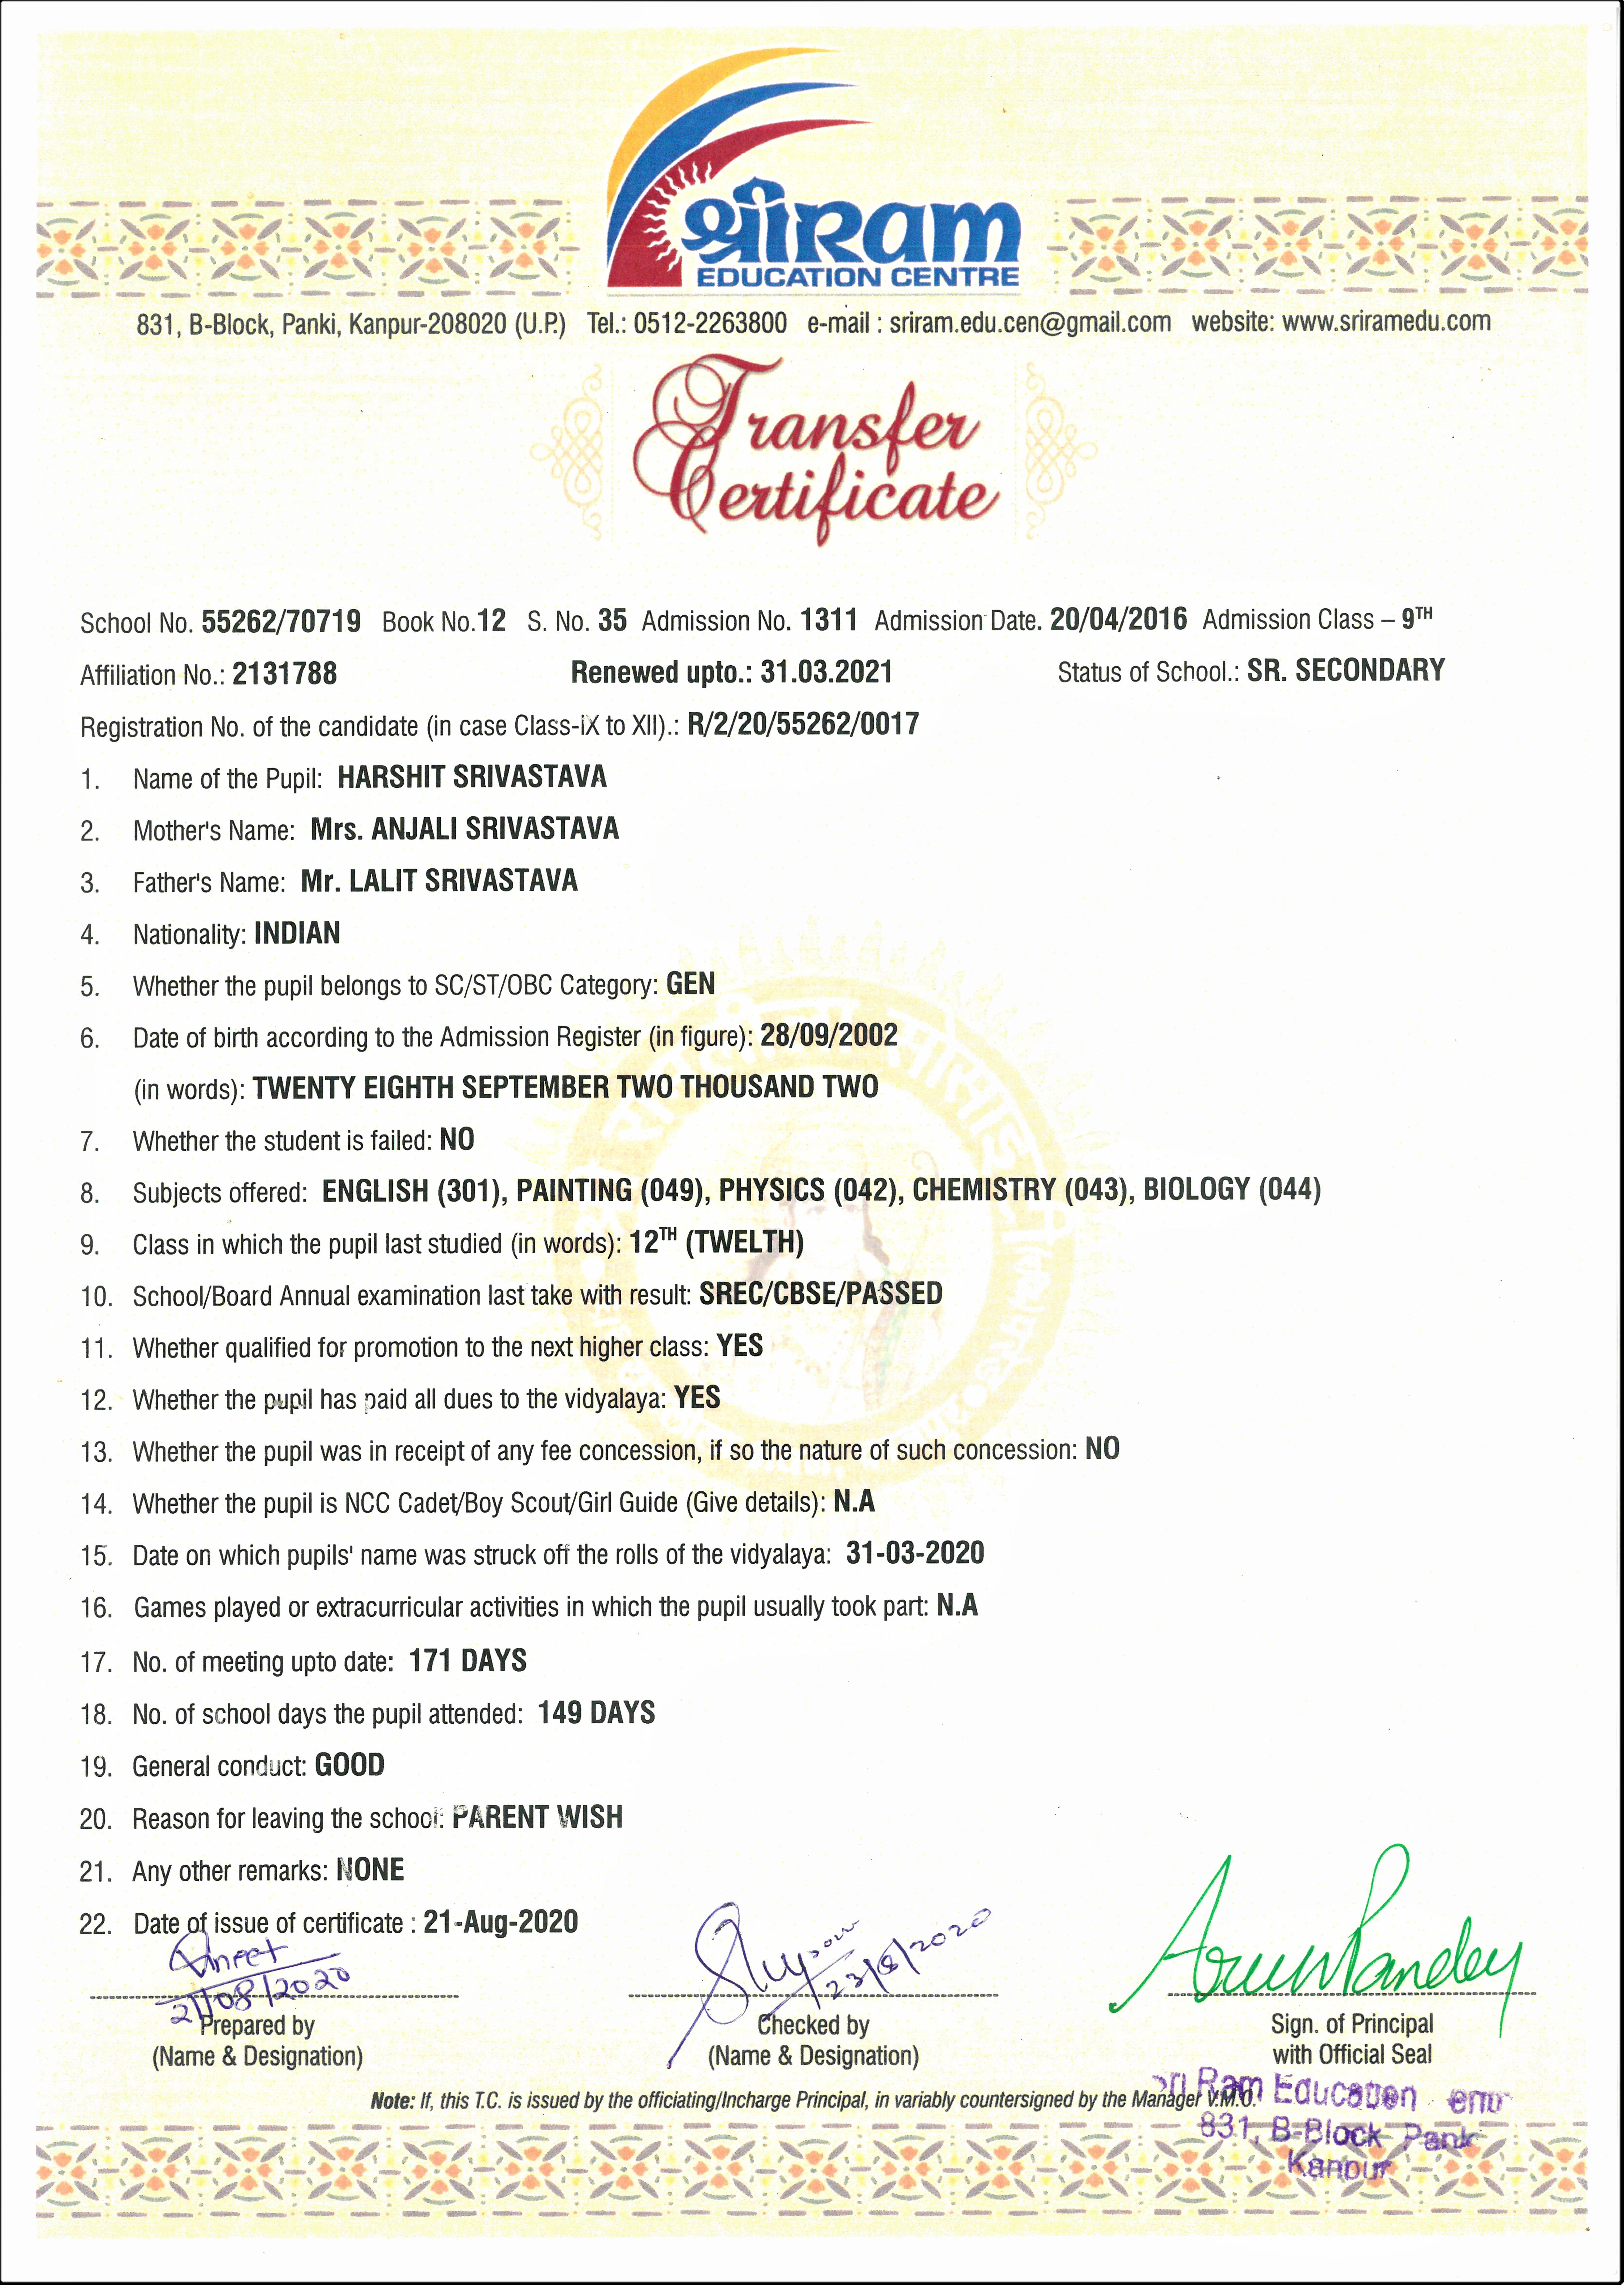 श्रीRam
EDUCATION CENTRE
831, B-Block, Panki, Kanpur-208020 (U.P.) Tel.: 0512-2263800 e-mail : sriram.edu.cen@gmail.com website: www.sriramedu.com
Transfer
Certificate
School No. 55262/70719 Book No.12 S. No. 35 Admission No. 1311 Admission Date. 20/04/2016 Admission Class – 9TH
Affiliation No.: 2131788 Renewed upto.: 31.03.2021 Status of School.: SR. SECONDARY
Registration No. of the candidate (in case Class-IX to XII).: R/2/20/55262/0017
1. Name of the Pupil: HARSHIT SRIVASTAVA
2. Mother's Name: Mrs. ANJALI SRIVASTAVA
3. Father's Name: Mr. LALIT SRIVASTAVA
4. Nationality: INDIAN
5. Whether the pupil belongs to SC/ST/OBC Category: GEN
6. Date of birth according to the Admission Register (in figure): 28/09/2002
(in words): TWENTY EIGHTH SEPTEMBER TWO THOUSAND TWO
7. Whether the student is failed: NO
8. Subjects offered: ENGLISH (301), PAINTING (049), PHYSICS (042), CHEMISTRY (043), BIOLOGY (044)
9. Class in which the pupil last studied (in words): 12TH (TWELTH)
10. School/Board Annual examination last take with result: SREC/CBSE/PASSED
11. Whether qualified for promotion to the next higher class: YES
12. Whether the pupil has paid all dues to the vidyalaya: YES
13. Whether the pupil was in receipt of any fee concession, if so the nature of such concession: NO
14. Whether the pupil is NCC Cadet/Boy Scout/Girl Guide (Give details): N.A
15. Date on which pupils' name was struck off the rolls of the vidyalaya: 31-03-2020
16. Games played or extracurricular activities in which the pupil usually took part: N.A
17. No. of meeting upto date: 171 DAYS
18. No. of school days the pupil attended: 149 DAYS
19. General conduct: GOOD
20. Reason for leaving the school: PARENT WISH
21. Any other remarks: NONE
22. Date of issue of certificate : 21-Aug-2020
21/08/2020 23/8/2020 Arun Pandey
Prepared by Checked by Sign. of Principal
(Name & Designation) (Name & Designation) with Official Seal
Note: If, this T.C. is issued by the officiating/Incharge Principal, in variably countersigned by the Manager V.M.C.
Ram Education
831, B-Block Panki
Kanpur